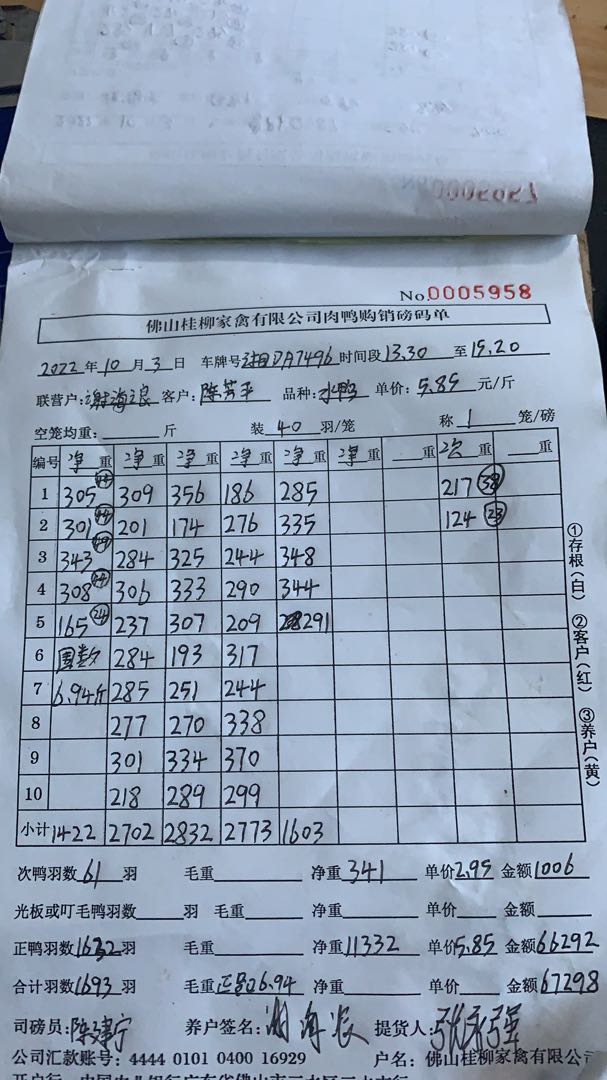 No.0005958
佛山桂柳家禽有限公司肉鸭购销磅码单
2022年10月3日 车牌号湘DA7496时间段13.30至15.20
联营户:谢海浪 客户:陈芳平 品种:水鸭 单价:5.85元/斤
空笼均重:斤 装40羽/笼 称1笼/磅
编号 净重 净重 净重 净重 净重 净重 重 次重 重
1 305 309 356 186 285 217 38
2 301 201 174 276 335 124 23
3 343 284 325 244 348
4 308 306 333 290 344
5 165 24 237 307 209 291
6 围数 284 193 317
7 6.94斤 285 251 244
8 277 270 338
9 301 334 370
10 218 289 299
小计 1422 2702 2832 2773 1603
①存根(白) ②客户(红) ③养户(黄)
次鸭羽数61羽 毛重 净重341 单价2.95 金额1006
光板或叮毛鸭羽数羽 毛重 净重 单价 金额
正鸭羽数1632羽 毛重 净重11332 单价5.85 金额66292
合计羽数1693羽 毛重 6.94 净重 单价 金额67298
司磅员:陈建宁 养户签名: 提货人:张永强
公司汇款账号:4444 0101 0400 16929 户名:佛山桂柳家禽有限公